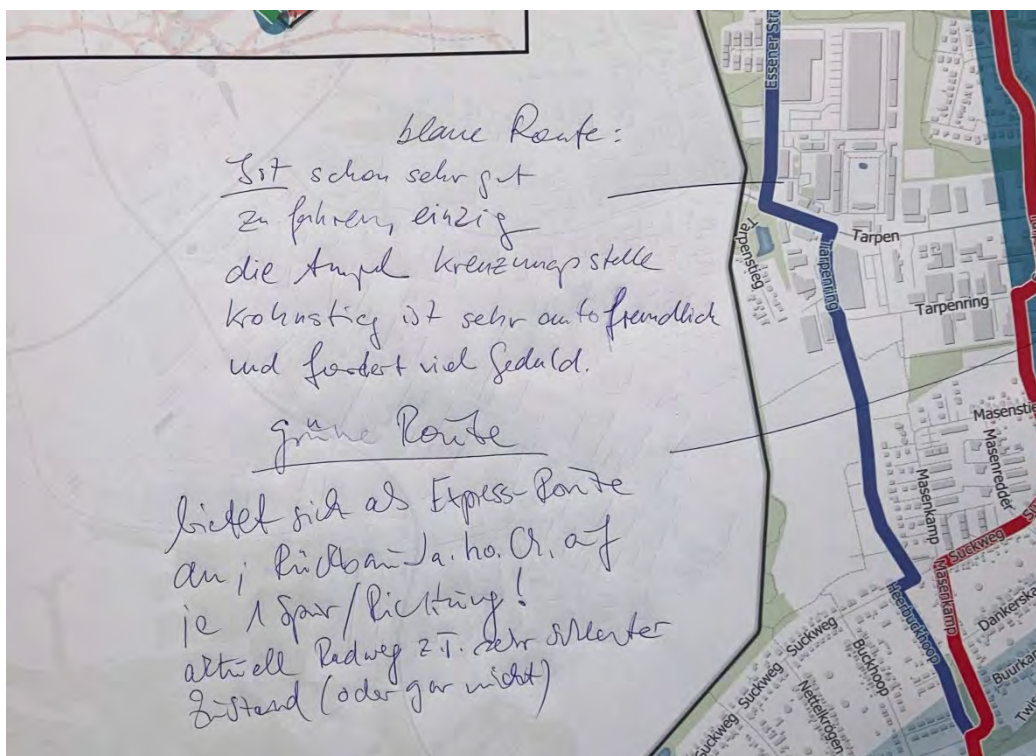 blaue Route:
Ist schon sehr gut
zu fahren, einzig
die Ampel Kreuzungsstelle
Krohnstieg ist sehr autofreundlich
und fordert viel Geduld.
grüne Route
bietet sich als Express-Route
an; Rückbau La.ho.Ch. auf
je 1 Spur/Richtung!
aktuell Radweg z.T. sehr schlechter
Zustand (oder gar nicht)
Essener Str
Tarpen
Tarpenstieg
Tarpenring
Tarpenring
Masenstie
Masenredder
Masenkamp
Suckweg
Masenkamp
Heerbuckhoop
Dankerska
Suckweg
Suckweg
Buckhoop
Buurkam
Nettelkrögen
Suckweg
Twis